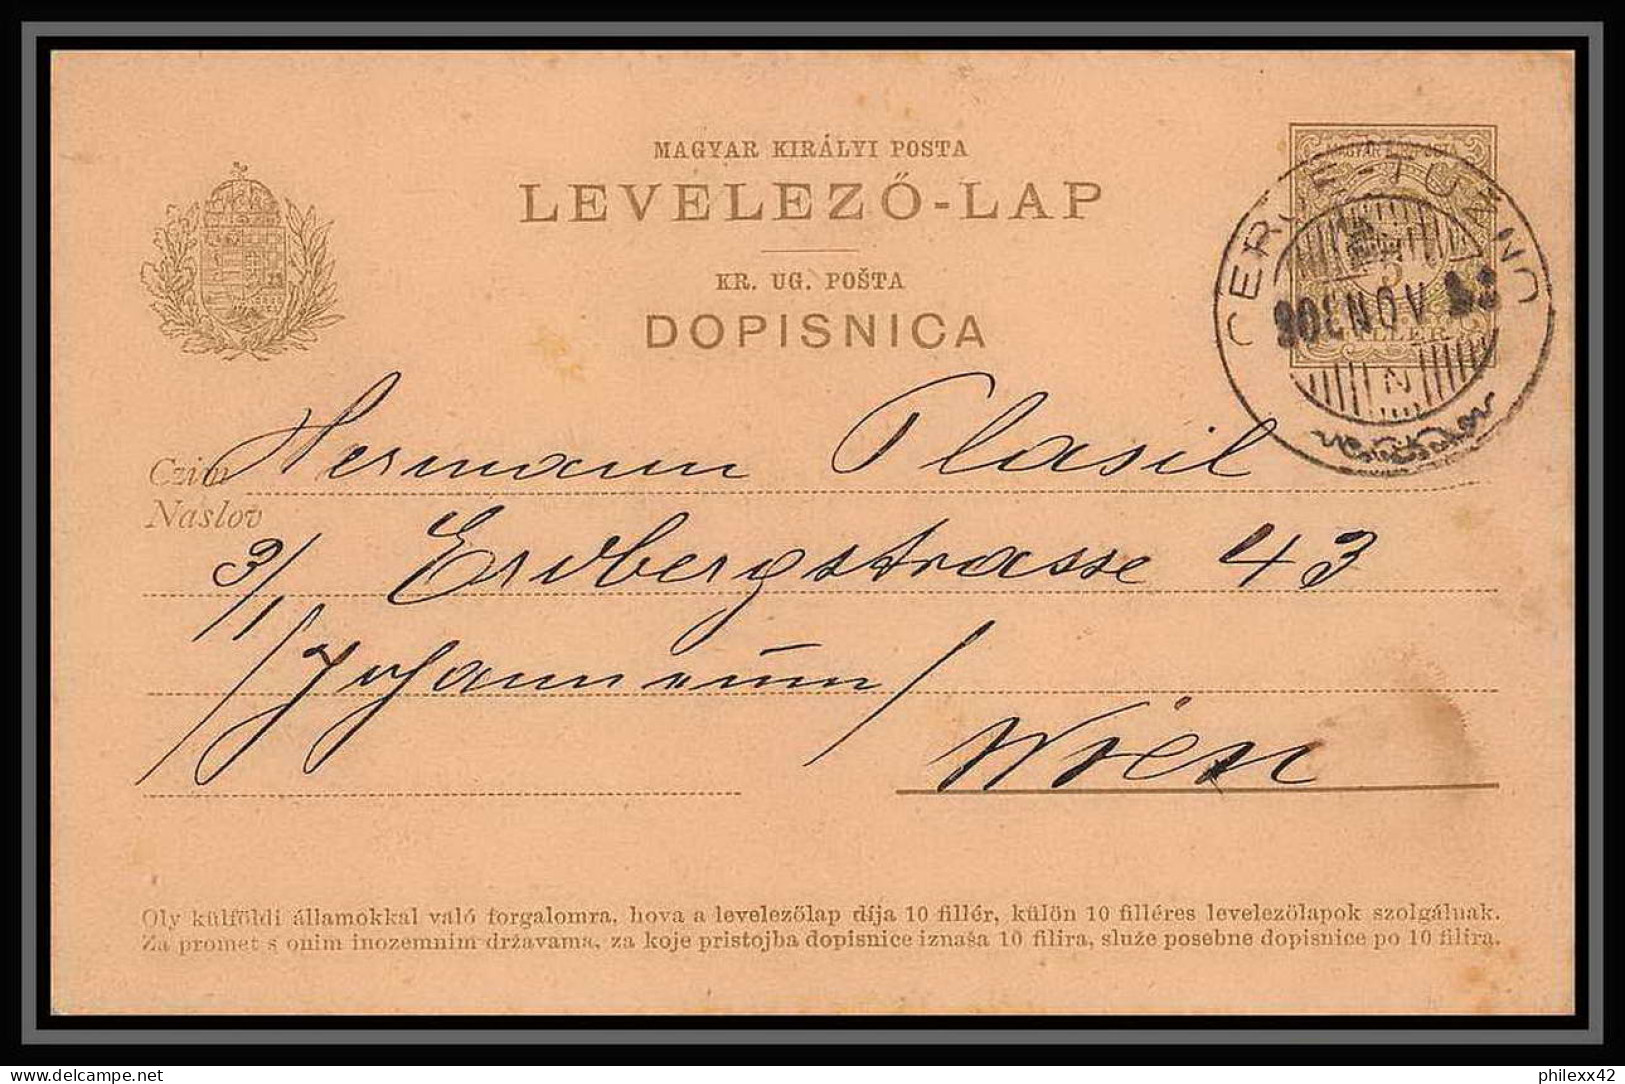 MAGYAR KIRÁLYI POSTA
LEVELEZŐ-LAP
KR. UG. POŠTA
DOPISNICA
Czim
Naslov
Hermann Plasil
3/1 Erdbergstrasse 43
/Johanneum/
Wien
Oly külföldi államokkal való forgalomra, hova a levelezőlap díja 10 fillér, külön 10 filléres levelezőlapok szolgálnak.
Za promet s onim inozemnim državama, za koje pristojba dopisnice iznaša 10 filira, služe posebne dopisnice po 10 filira.
philexx42